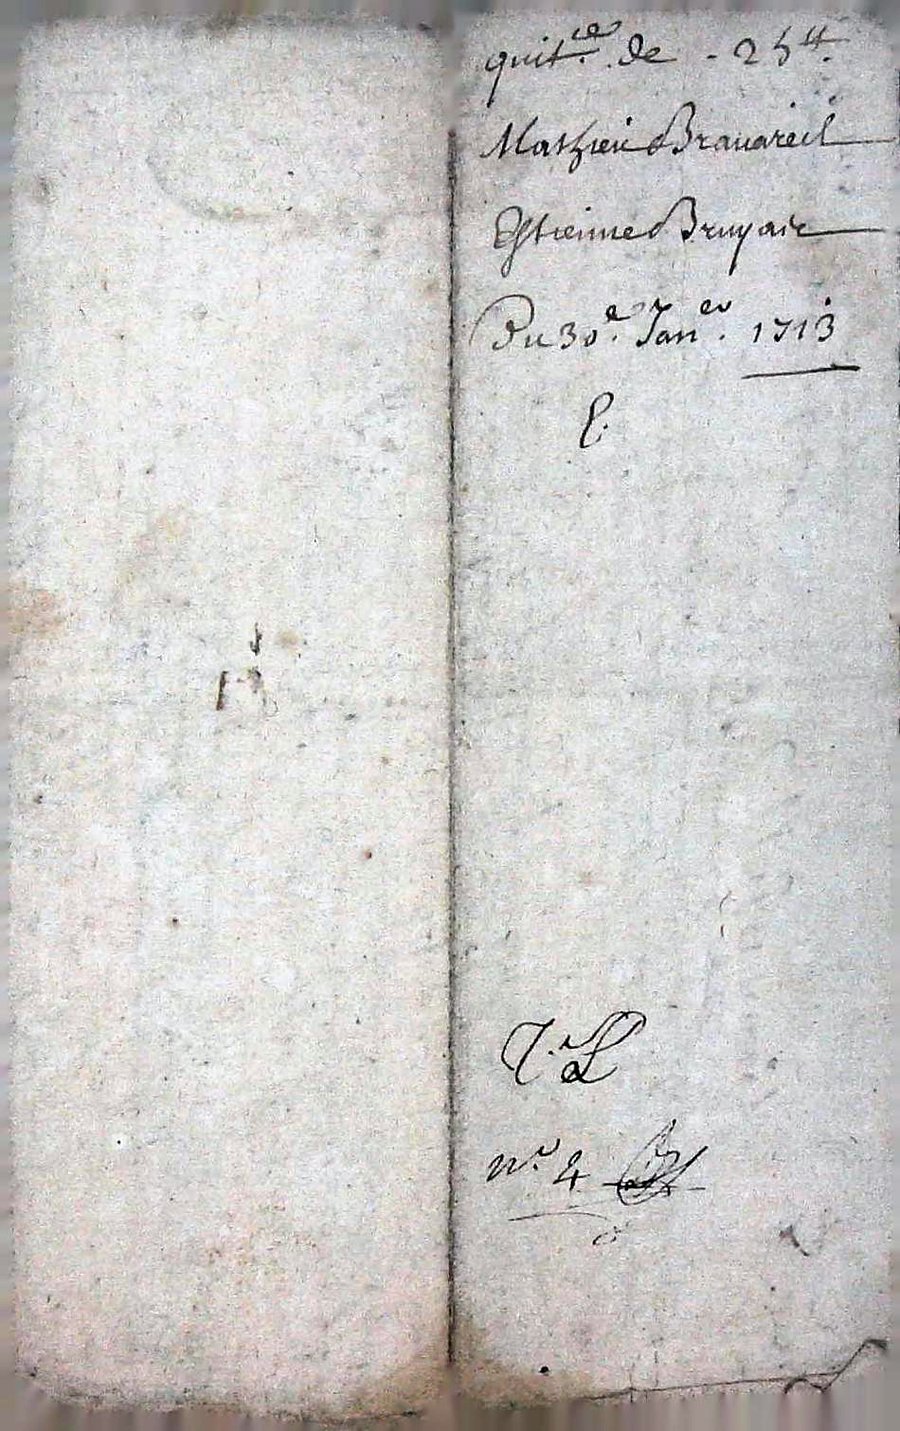 quit.ce de - 25 tt
Mathieu Brauareil
Estienne Bruyair
Du 30.e Jan.er 1713
E.
T. L
n.o 4